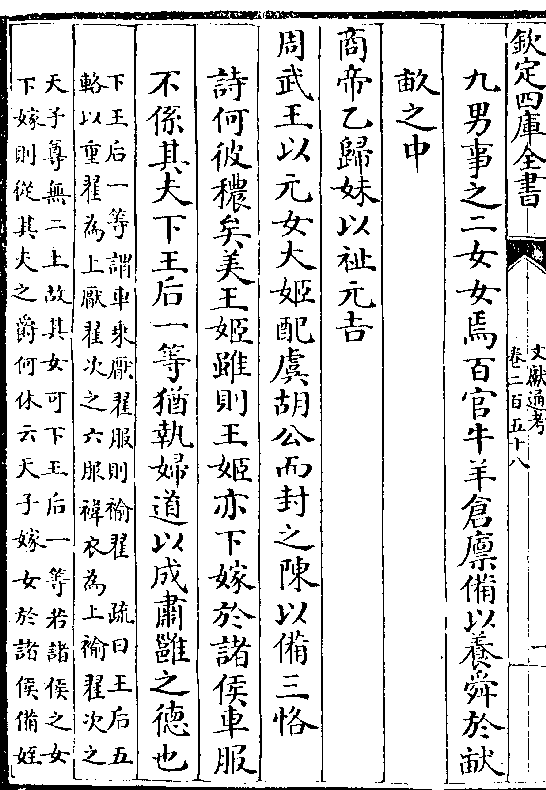 欽定四庫全書
文獻通考
卷二百五十八
一
九男事之二女女焉百官牛羊倉廪備以養舜於畎
畝之中
商帝乙歸妹以祉元吉
周武王以元女大姬配虞胡公而封之陳以備三恪
詩何彼穠矣美王姬雖則王姬亦下嫁於諸侯車服
不係其夫下王后一等猶執婦道以成肅雝之德也
下王后一等謂車乘厭翟服則褕翟 疏曰王后五
輅以重翟為上厭翟次之六服褘衣為上褕翟次之
天子尊無二上故其女可下王后一等若諸侯之女
下嫁則從其夫之爵何休云天子嫁女於諸侯備姪